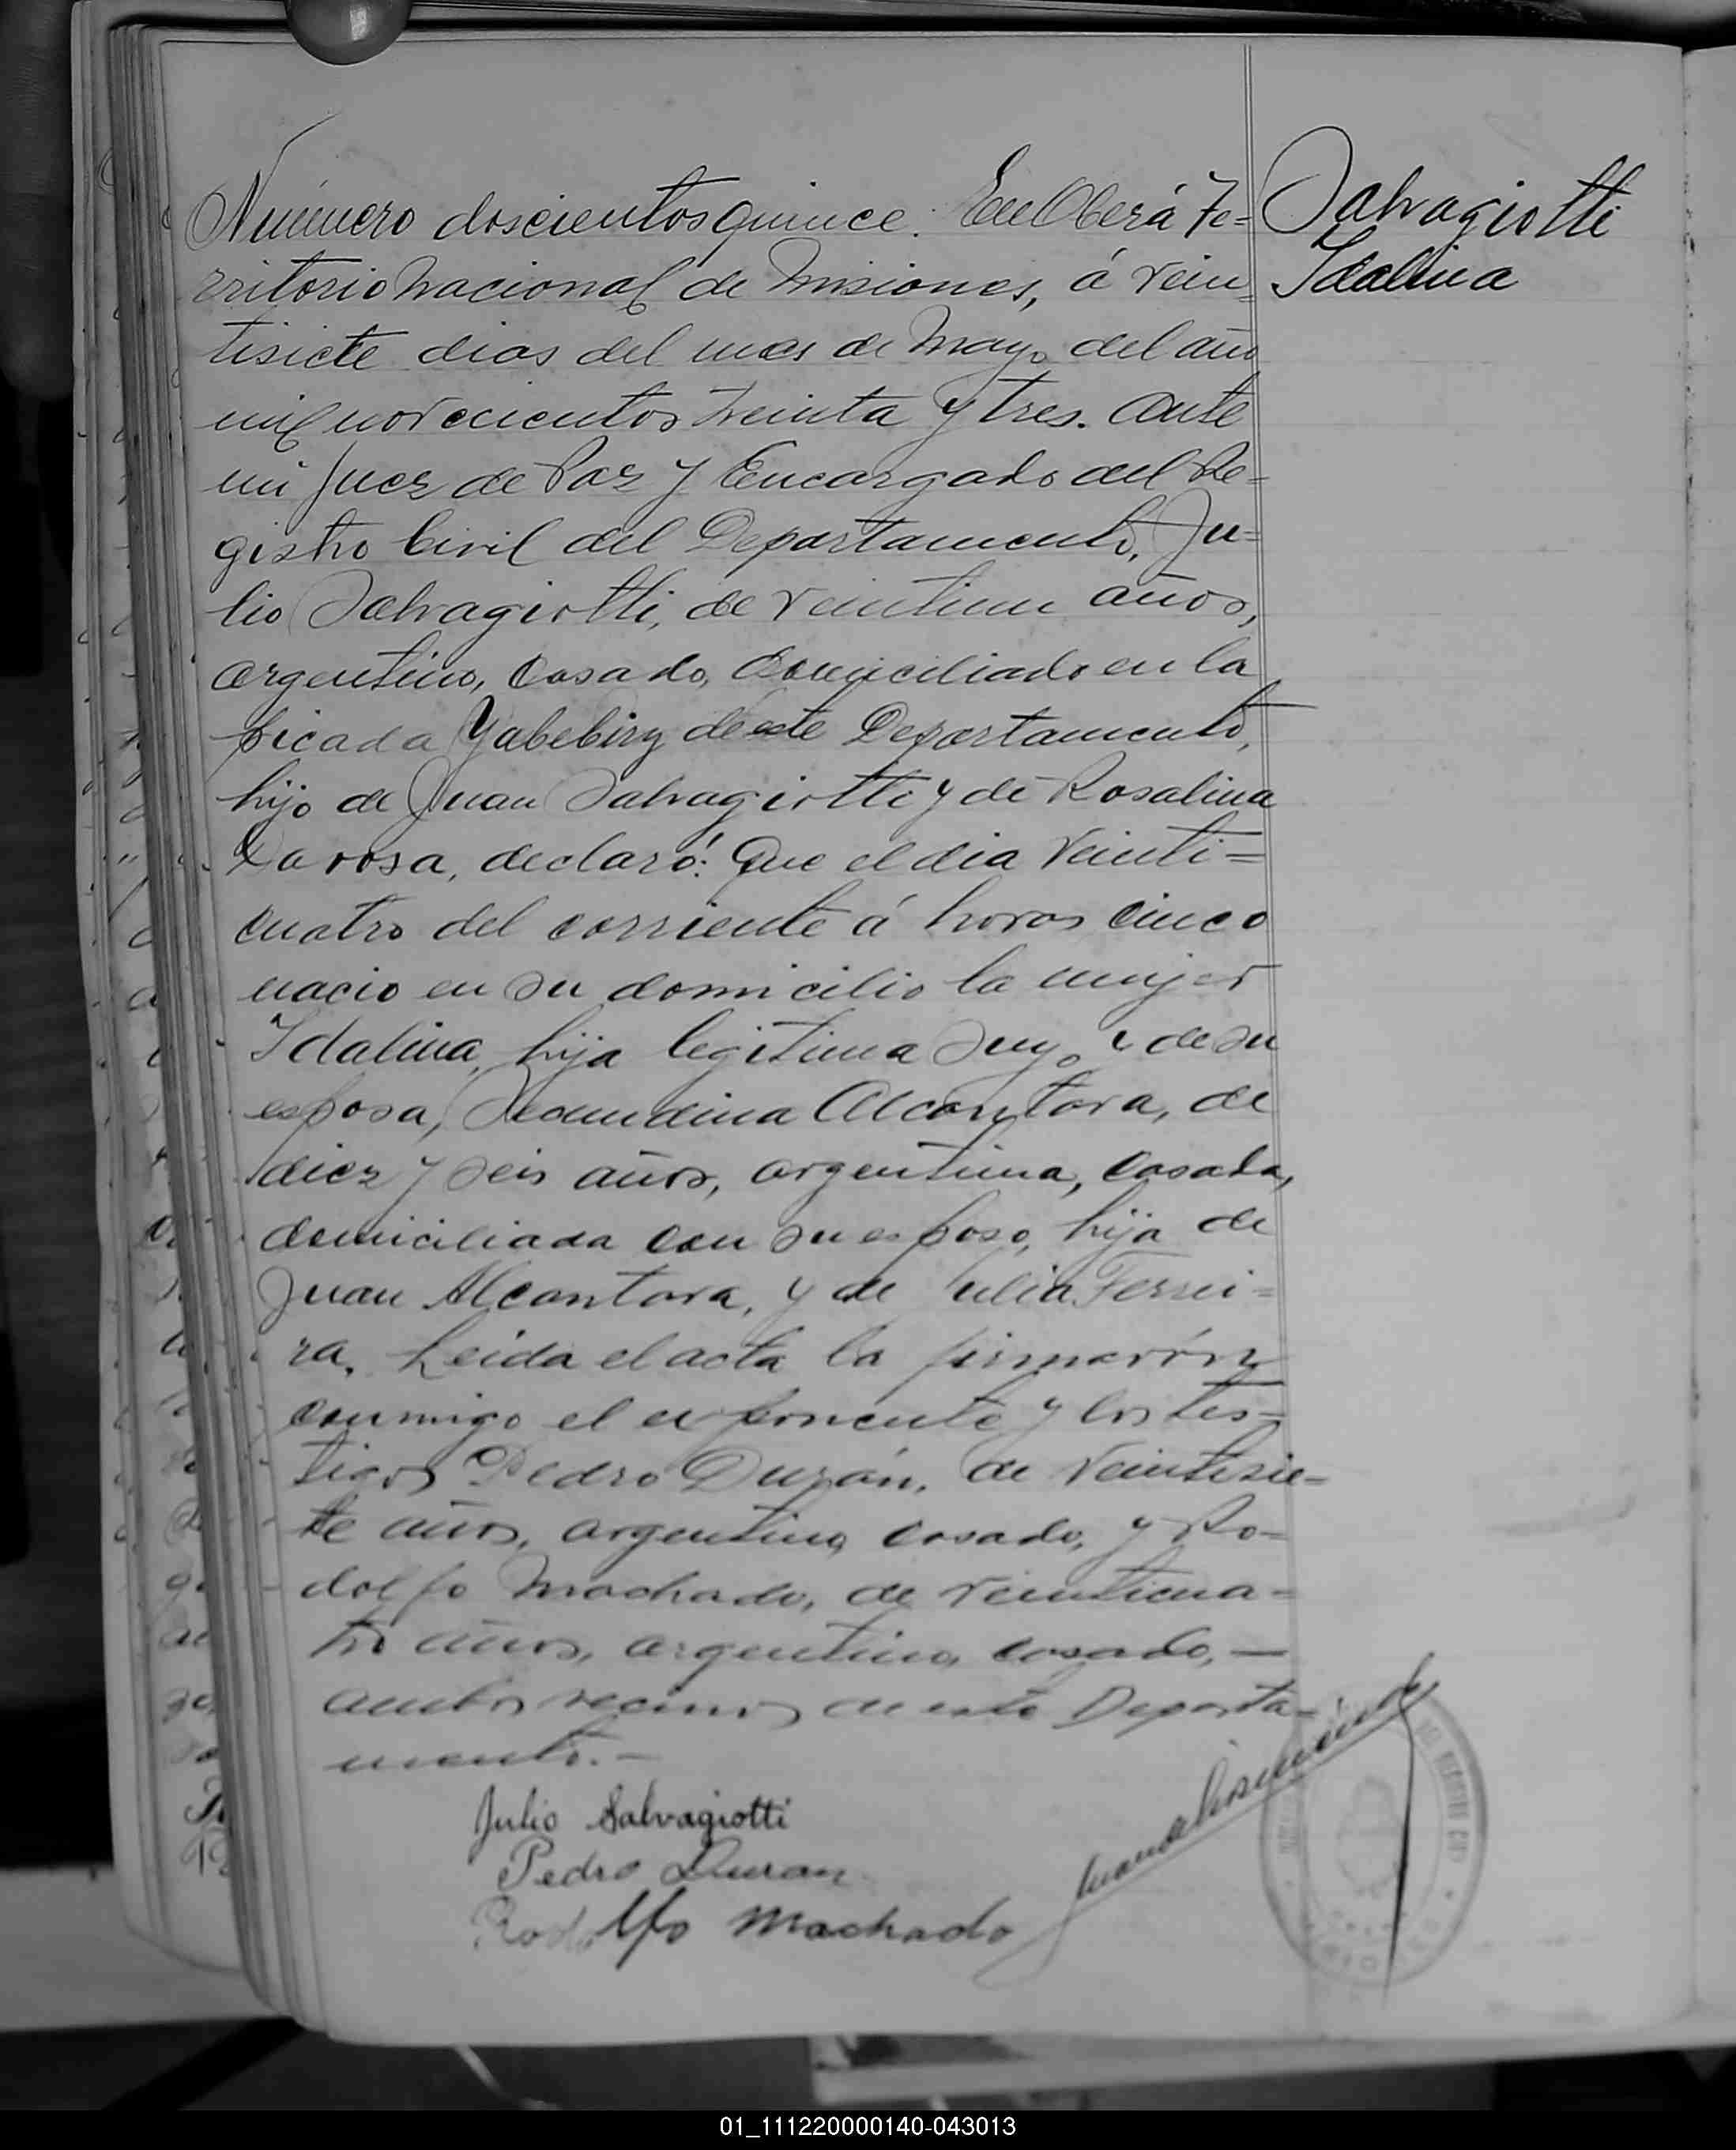 Número doscientos quince. En Oberá Te=
rritorio Nacional de Misiones, á vein=
tisiete dias del mes de Mayo del año
mil novecientos treinta y tres. Ante
mi Juez de Paz y Encargado del Re=
gistro Civil del Departamento, Ju=
lio Salvagiotti, de veintiun años,
argentino, casado, domiciliado en la
picada Yabebiry de este Departamento,
hijo de Juan Salvagiotti y de Rosalina
Da rosa, declaró: Que el dia veinti=
cuatro del corriente á horas cinco
nacio en su domicilio la mujer
Idalina, hija legitima suya y de su
esposa, Secundina Alcantara, de
diez y seis años, argentina, casada,
domiciliada con su esposo, hija de
Juan Alcantara, y de Julia Ferrei=
ra. Leida el acta la firmarón
conmigo el exponente y los tes=
tigos Pedro Durán, de veintisie=
te años, argentino, casado, y Ro=
dolfo Machado, de veinticua=
tro años, argentino, casado, —
ambos vecinos de este Departa=
mento. —
Julio Salvagiotti
Pedro Duran
Rodolfo Machado
Salvagiotti
Idalina
01_111220000140-043013